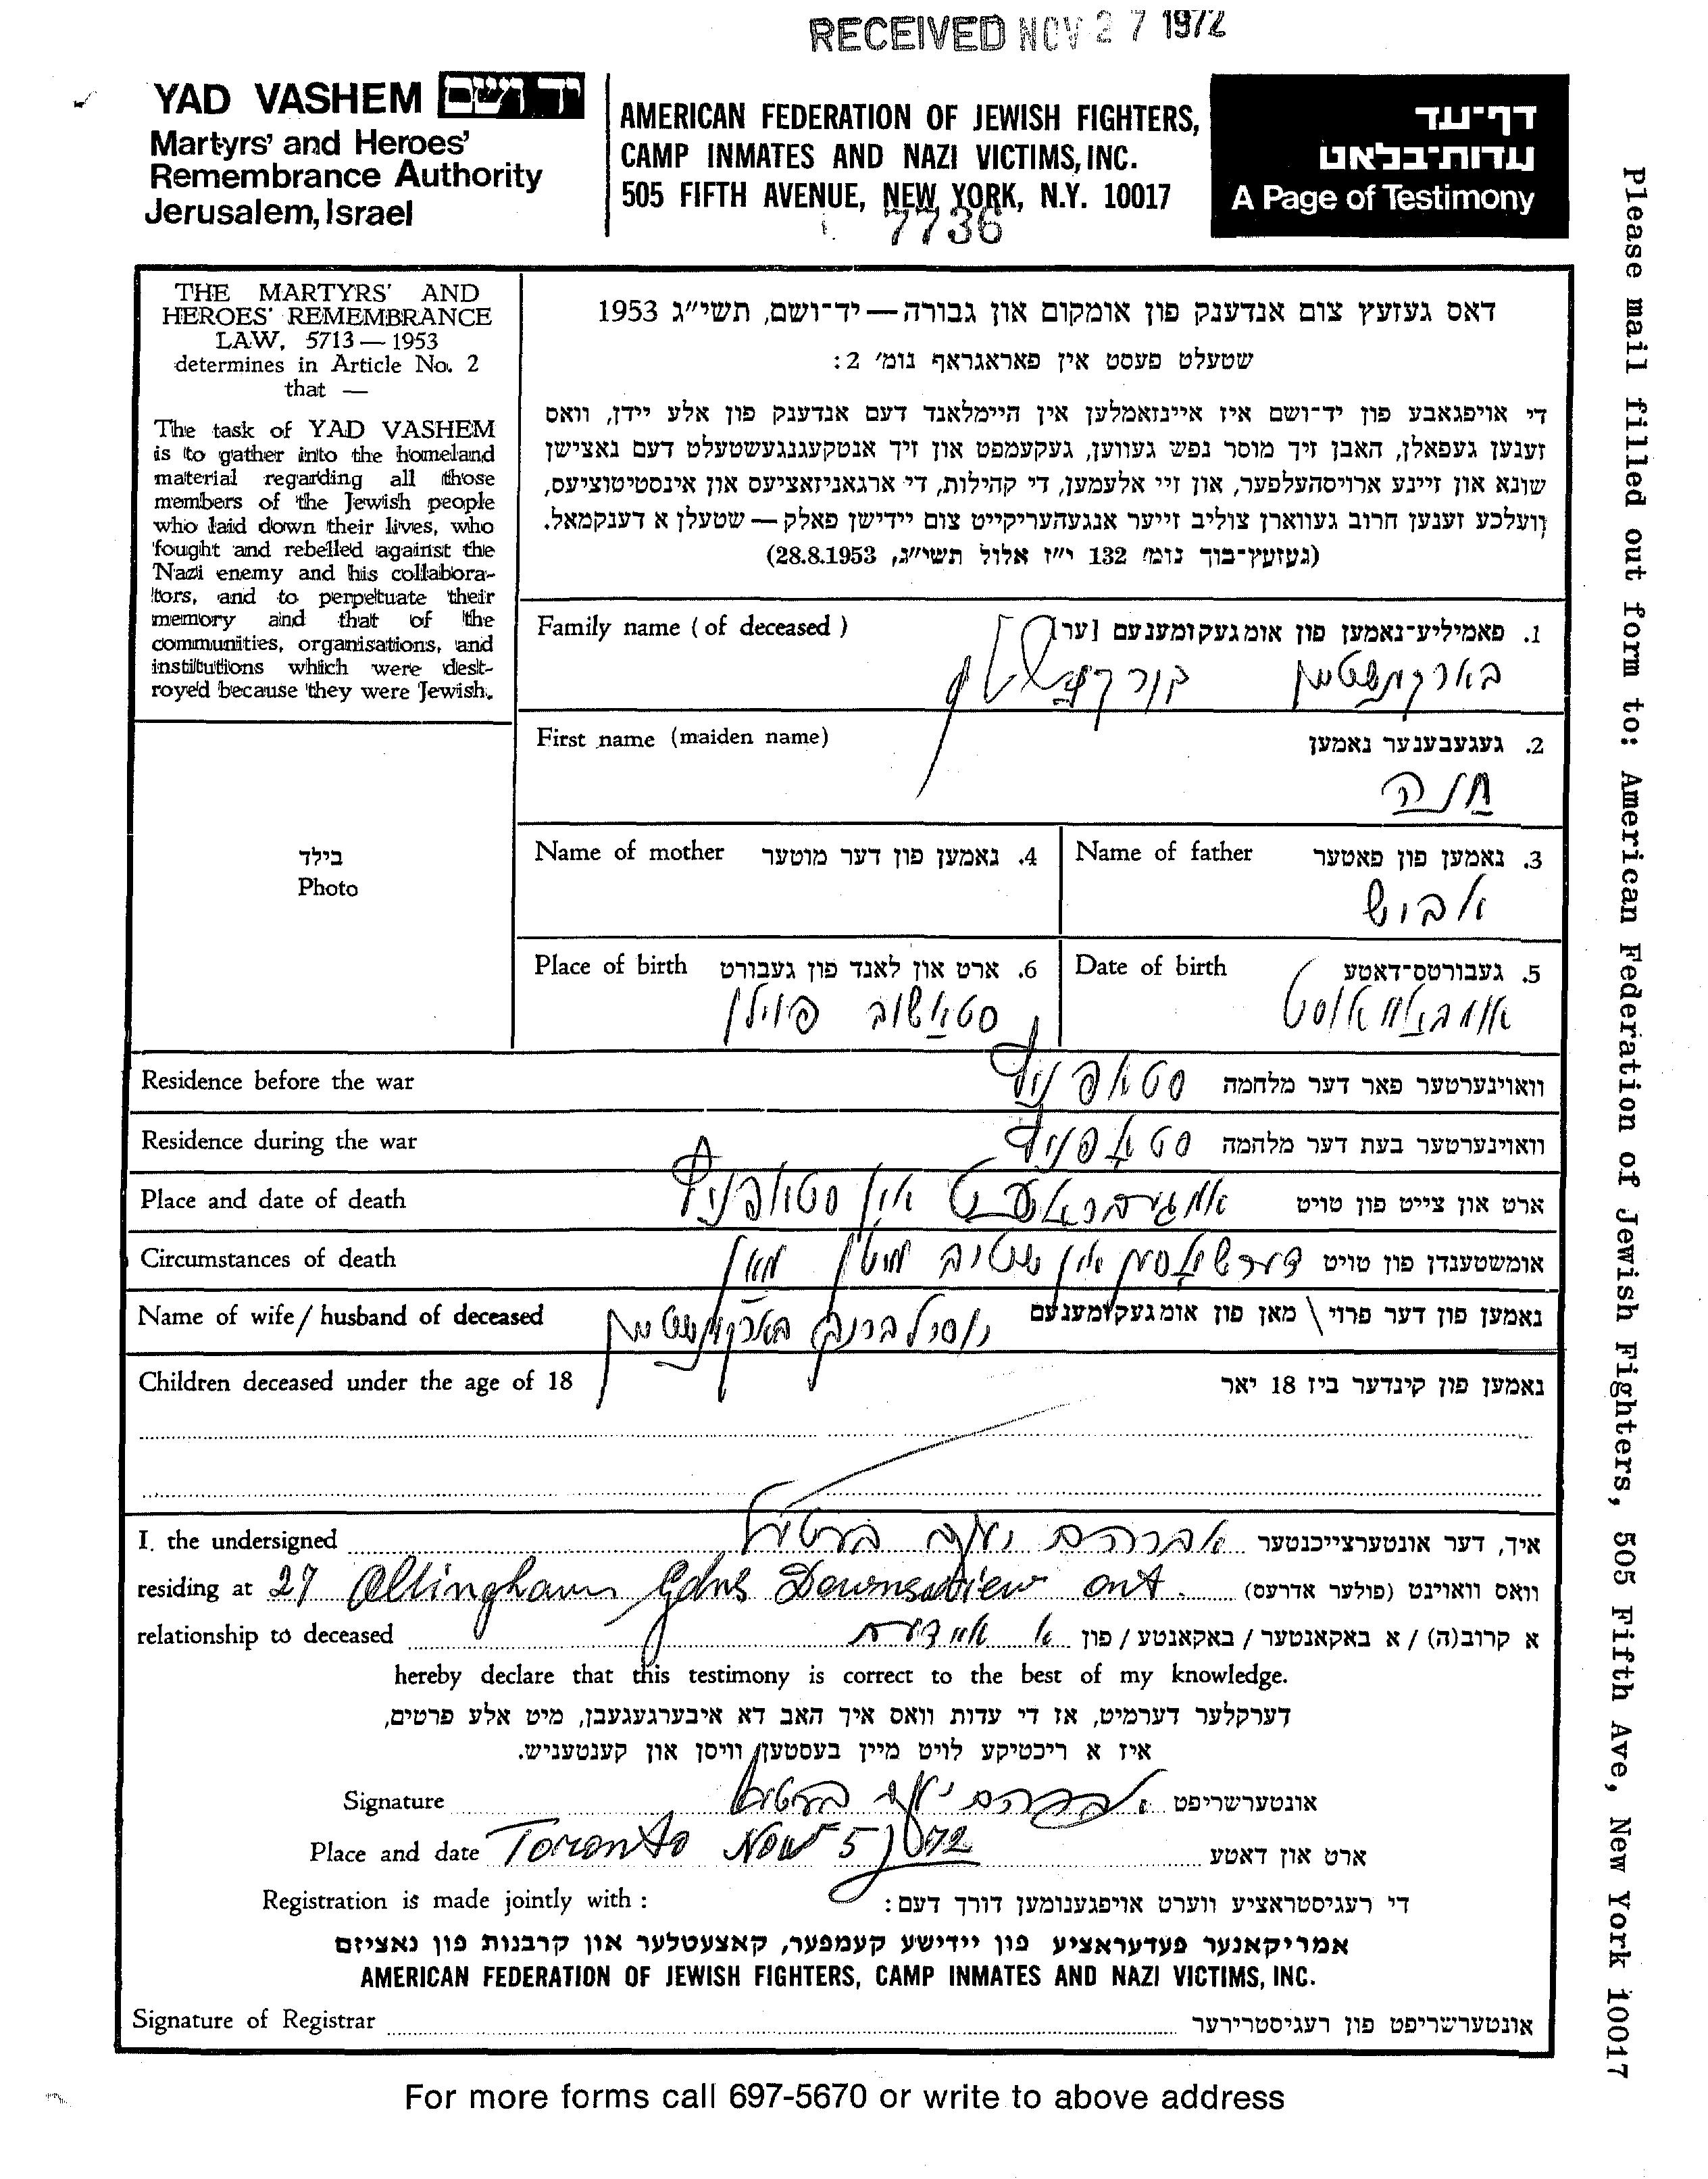 RECEIVED NOV 27 1972
YAD VASHEM יד ושם
Martyrs' and Heroes'
Remembrance Authority
Jerusalem, Israel
AMERICAN FEDERATION OF JEWISH FIGHTERS,
CAMP INMATES AND NAZI VICTIMS, INC.
505 FIFTH AVENUE, NEW YORK, N.Y. 10017
7736
דף־עד
עדות־בלאט
A Page of Testimony
Please mail filled out form to: American Federation of Jewish Fighters, 505 Fifth Ave, New York 10017
THE MARTYRS' AND
HEROES' REMEMBRANCE
LAW, 5713 — 1953
determines in Article No. 2
that —
The task of YAD VASHEM
is to gather into the homeland
material regarding all those
members of the Jewish people
who laid down their lives, who
fought and rebelled against the
Nazi enemy and his collabora-
tors, and to perpetuate their
memory and that of the
communities, organisations, and
institutions which were dest-
royed because they were Jewish.
דאס געזעץ צום אנדענק פון אומקום און גבורה — יד־ושם, תשי״ג 1953
שטעלט פעסט אין פאראגראף נומ׳ 2:
די אויפגאבע פון יד־ושם איז איינזאמלען אין היימלאנד דעם אנדענק פון אלע יידן, וואס
זענען געפאלן, האבן זיך מוסר נפש געווען, געקעמפט און זיך אנטקעגנגעשטעלט דעם נאצישן
שונא און זיינע ארויסהעלפער, און זיי אלעמען, די קהילות, די ארגאניזאציעס און אינסטיטוציעס,
וועלכע זענען חרוב געווארן צוליב זייער אנגעהעריקייט צום יידישן פאלק — שטעלן א דענקמאל.
(געזעץ־בוך נומ׳ 132 י״ז אלול תשי״ג, 28.8.1953)
Family name ( of deceased ) 1. פאמיליע־נאמען פון אומגעקומענעם [ער]
First name (maiden name) 2. געגעבענער נאמען
חנה
בילד
Photo
Name of mother 4. נאמען פון דער מוטער
Name of father 3. נאמען פון פאטער
אבוש
Place of birth 6. ארט און לאנד פון געבורט
סטאשוב פוילן
Date of birth 5. געבורטס־דאטע
אומבאוואוסט
Residence before the war וואוינערטער פאר דער מלחמה
סטאפניץ
Residence during the war וואוינערטער בעת דער מלחמה
סטאפניץ
Place and date of death ארט און צייט פון טויט
אומגעבראכט אין סטאפניץ
Circumstances of death אומשטענדן פון טויט
דערשאסן אין שטוב מיטן מאן
Name of wife / husband of deceased נאמען פון דער פרוי \ מאן פון אומגעקומענעם
Children deceased under the age of 18 נאמען פון קינדער ביז 18 יאר
I, the undersigned איך, דער אונטערצייכנטער
אברהם
residing at 27 Allingham Gdns Downsview Ont. וואס וואוינט (פולער אדרעס)
relationship to deceased א קרוב(ה) / א באקאנטער / באקאנטע / פון
hereby declare that this testimony is correct to the best of my knowledge.
דערקלער דערמיט, אז די עדות וואס איך האב דא איבערגעגעבן, מיט אלע פרטים,
איז א ריכטיקע לויט מיין בעסטען וויסן און קענטעניש.
Signature אונטערשריפט
אברהם
Place and date Toronto Nov 5 / 72 ארט און דאטע
Registration is made jointly with : די רעגיסטראציע ווערט אויפגענומען דורך דעם:
אמריקאנער פעדעראציע פון יידישע קעמפער, קאצעטלער און קרבנות פון נאציזם
AMERICAN FEDERATION OF JEWISH FIGHTERS, CAMP INMATES AND NAZI VICTIMS, INC.
Signature of Registrar אונטערשריפט פון רעגיסטרירער
For more forms call 697-5670 or write to above address